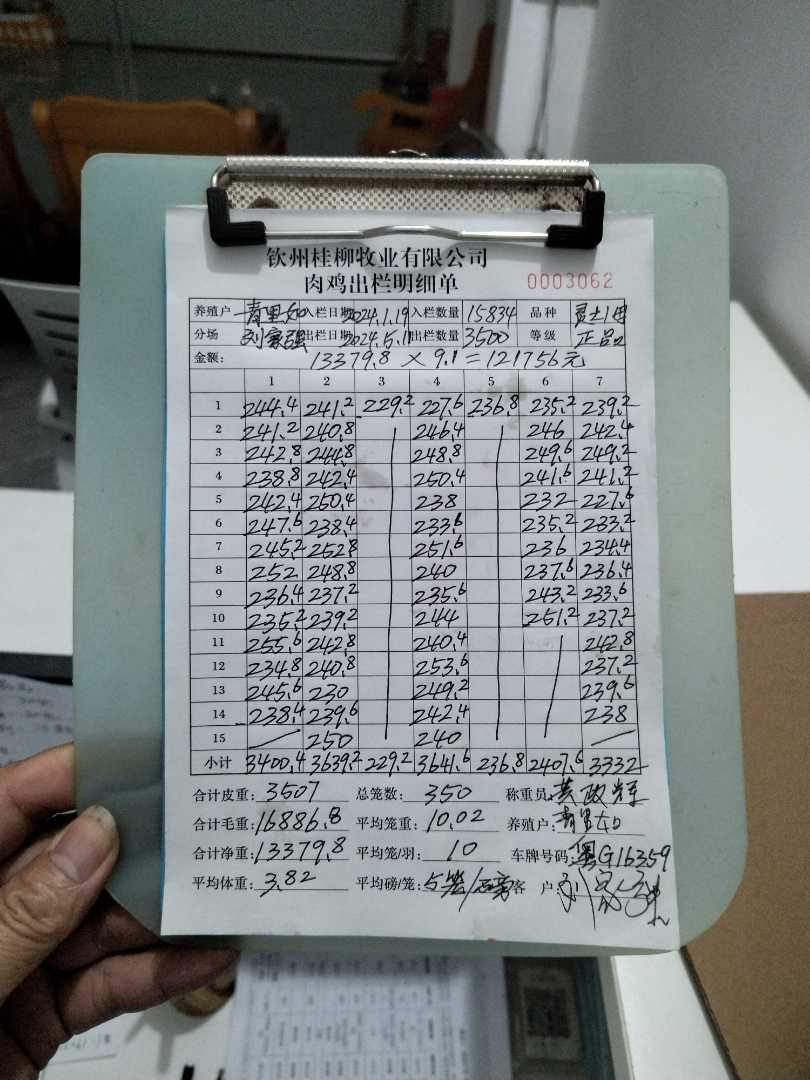 钦州桂柳牧业有限公司
肉鸡出栏明细单 0003062
养殖户 入栏日期 2024.1.19 入栏数量 15834 品种
分场 刘家强 出栏日期 2024.5.11 出栏数量 3500 等级 正品
金额: 13379.8 × 9.1 = 121756元
1 2 3 4 5 6 7
1 244.4 241.2 229.2 227.6 236.8 235.2 239.2
2 241.2 240.8 246.4 246 242.4
3 242.8 244.8 248.8 249.6 249.2
4 238.8 242.4 250.4 241.6 241.2
5 242.4 250.4 238 232 227.6
6 247.6 238.4 233.6 235.2 233.2
7 245.2 252.8 251.6 236 234.4
8 252 248.8 240 237.6 236.4
9 236.4 237.2 235.6 243.2 233.6
10 235.2 239.2 244 251.2 237.2
11 255.6 242.8 240.4 242.8
12 234.8 240.8 253.6 237.2
13 245.6 230 249.2 239.6
14 238.4 239.6 242.4 238
15 250 240
小计 3400.4 3639.2 229.2 3641.6 236.8 2407.6 3332
合计皮重: 3507 总笼数: 350 称重员:
合计毛重: 16886.8 平均笼重: 10.02 养殖户:
合计净重: 13379.8 平均笼/羽: 10 车牌号码: G16359
平均体重: 3.82 平均磅/笼: 客 户: